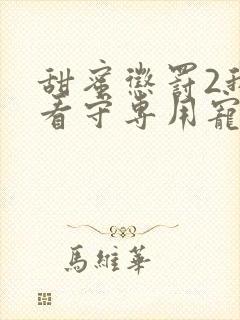 甜蜜懲罰2我
看守專用寵
馬維華